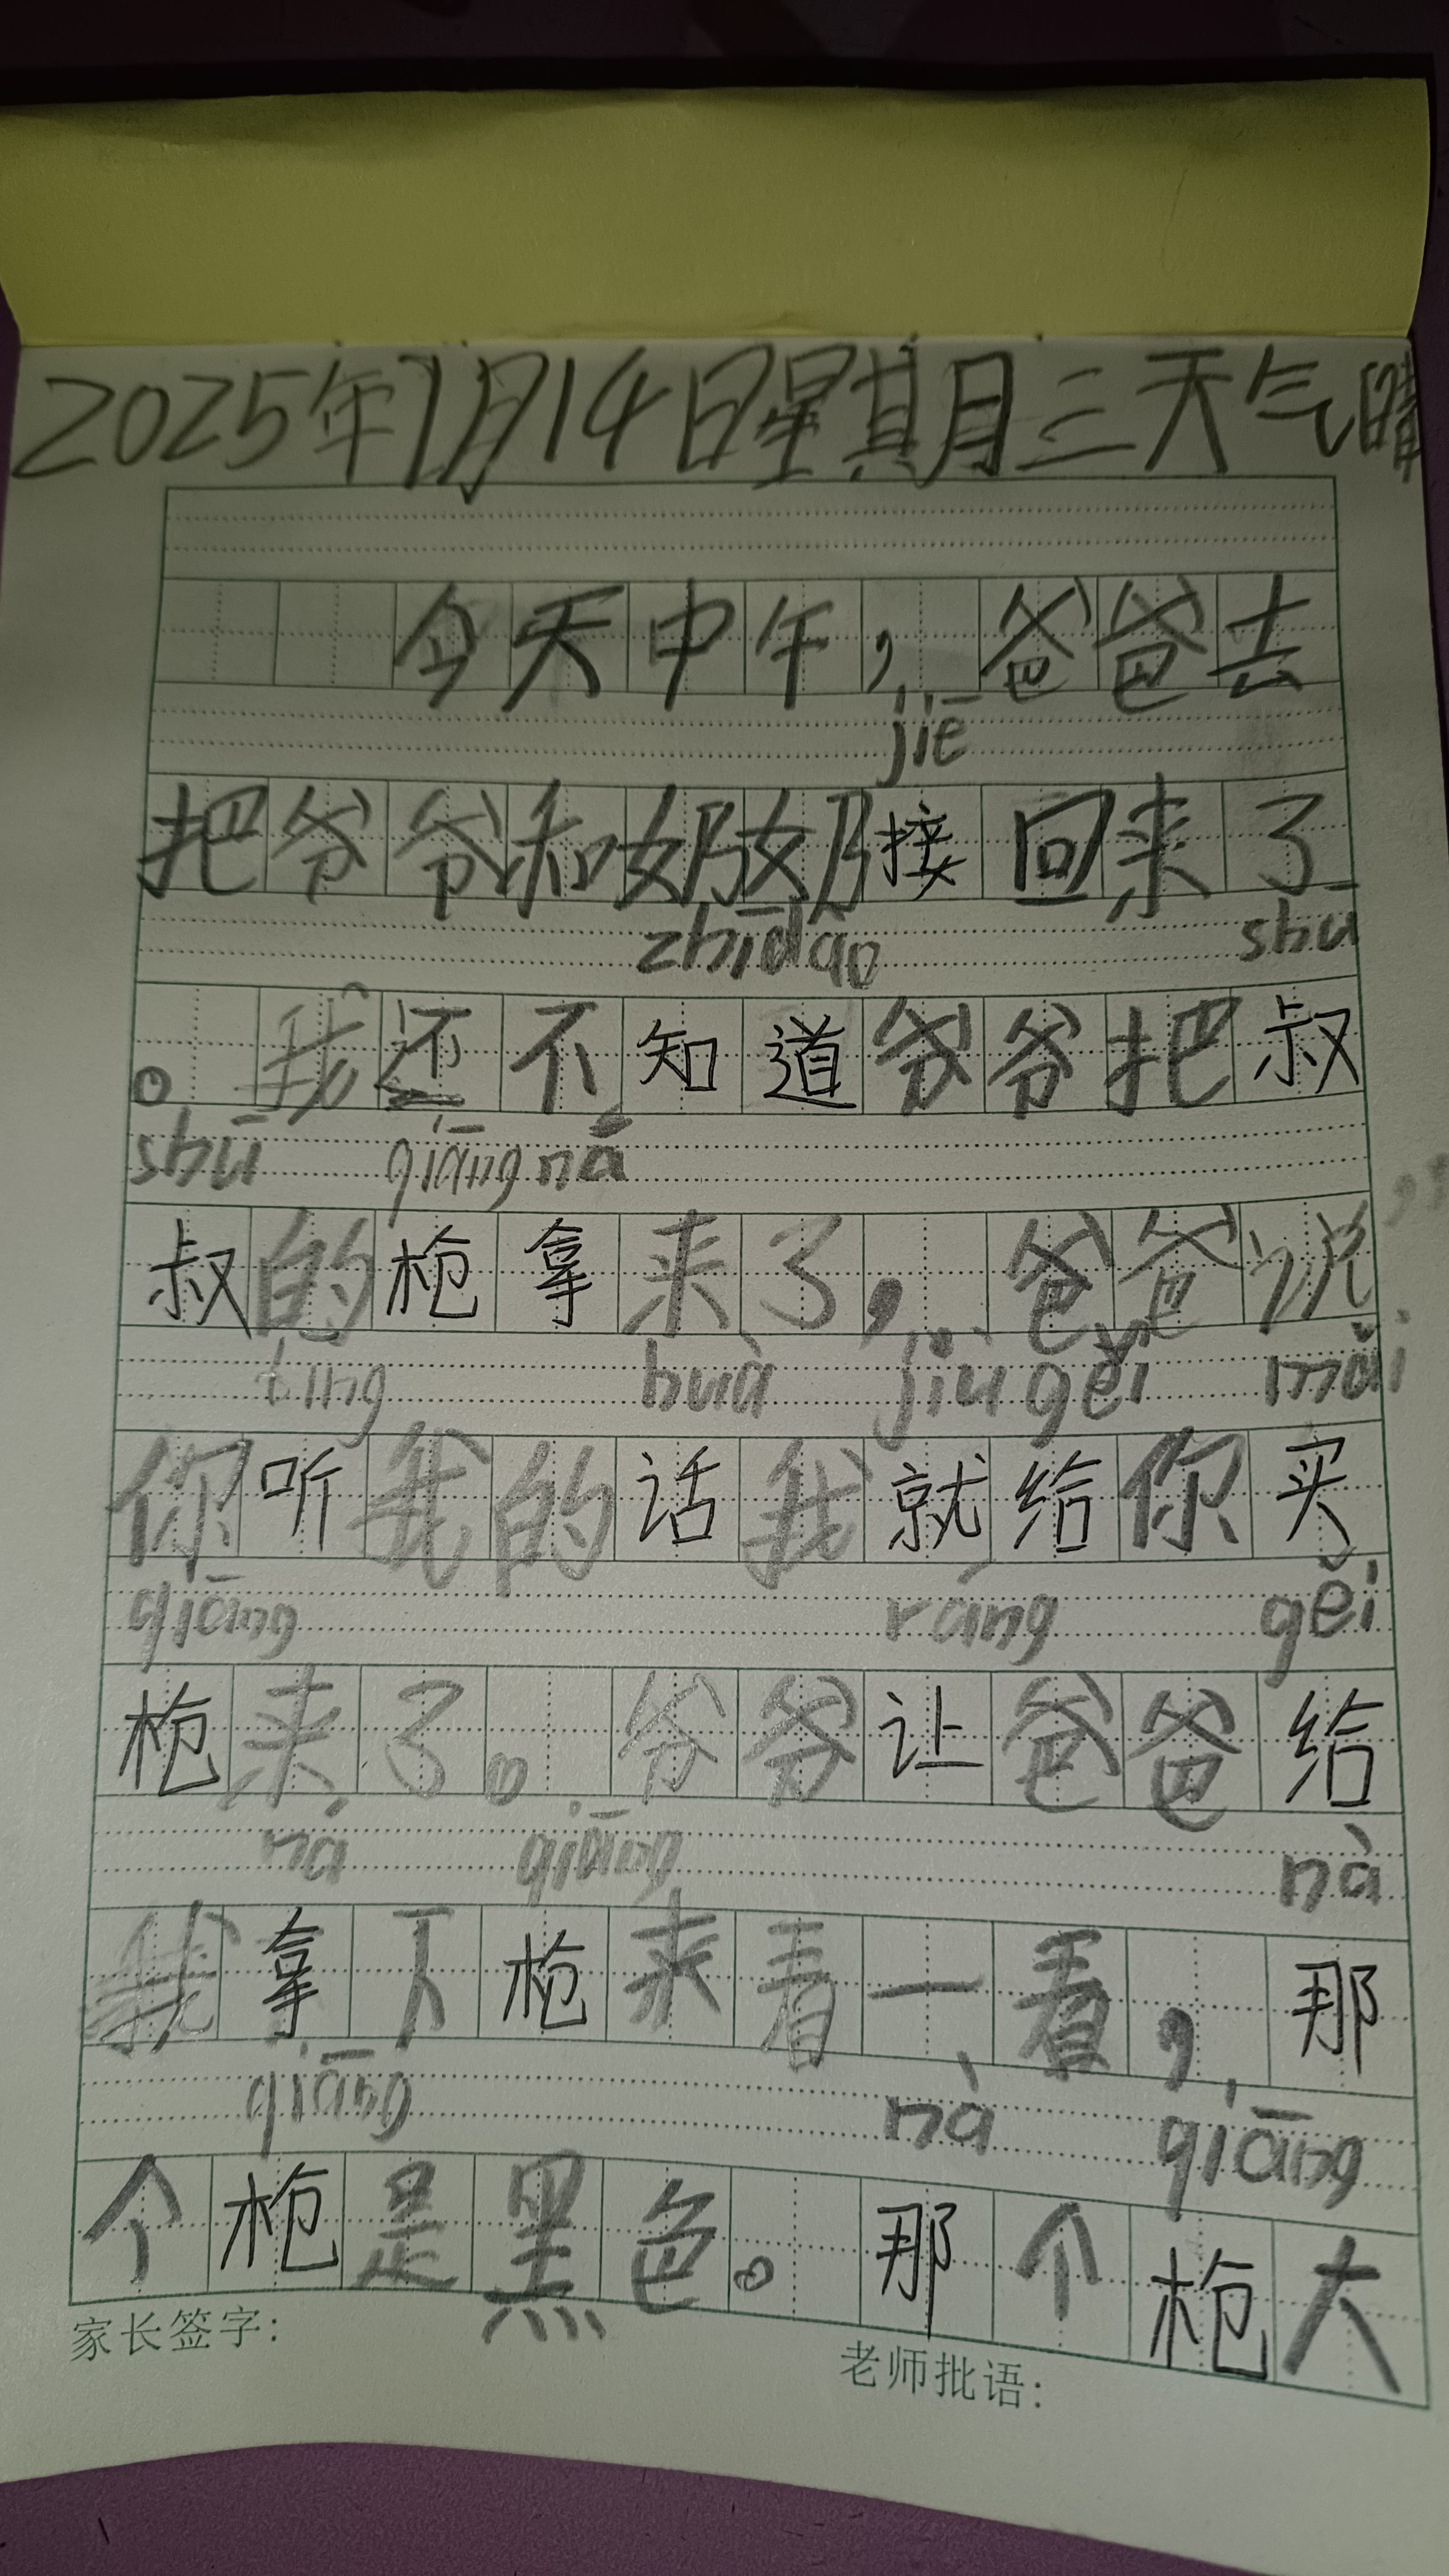 2025年1月14日星期三天气晴
今天中午，爸爸去
jiē
把爷爷和奶奶接回来了
zhīdào shū
。我还不知道爷爷把叔
shū qiāng ná
叔的枪拿来了，爸爸说
tīng huà jiù gěi mǎi
你听我的话我就给你买
qiāng ràng gěi
枪来了。爷爷让爸爸给
ná qiāng nà
我拿下枪来看一看，那
qiāng nà qiāng
个枪是黑色。那个枪大
家长签字：
老师批语：